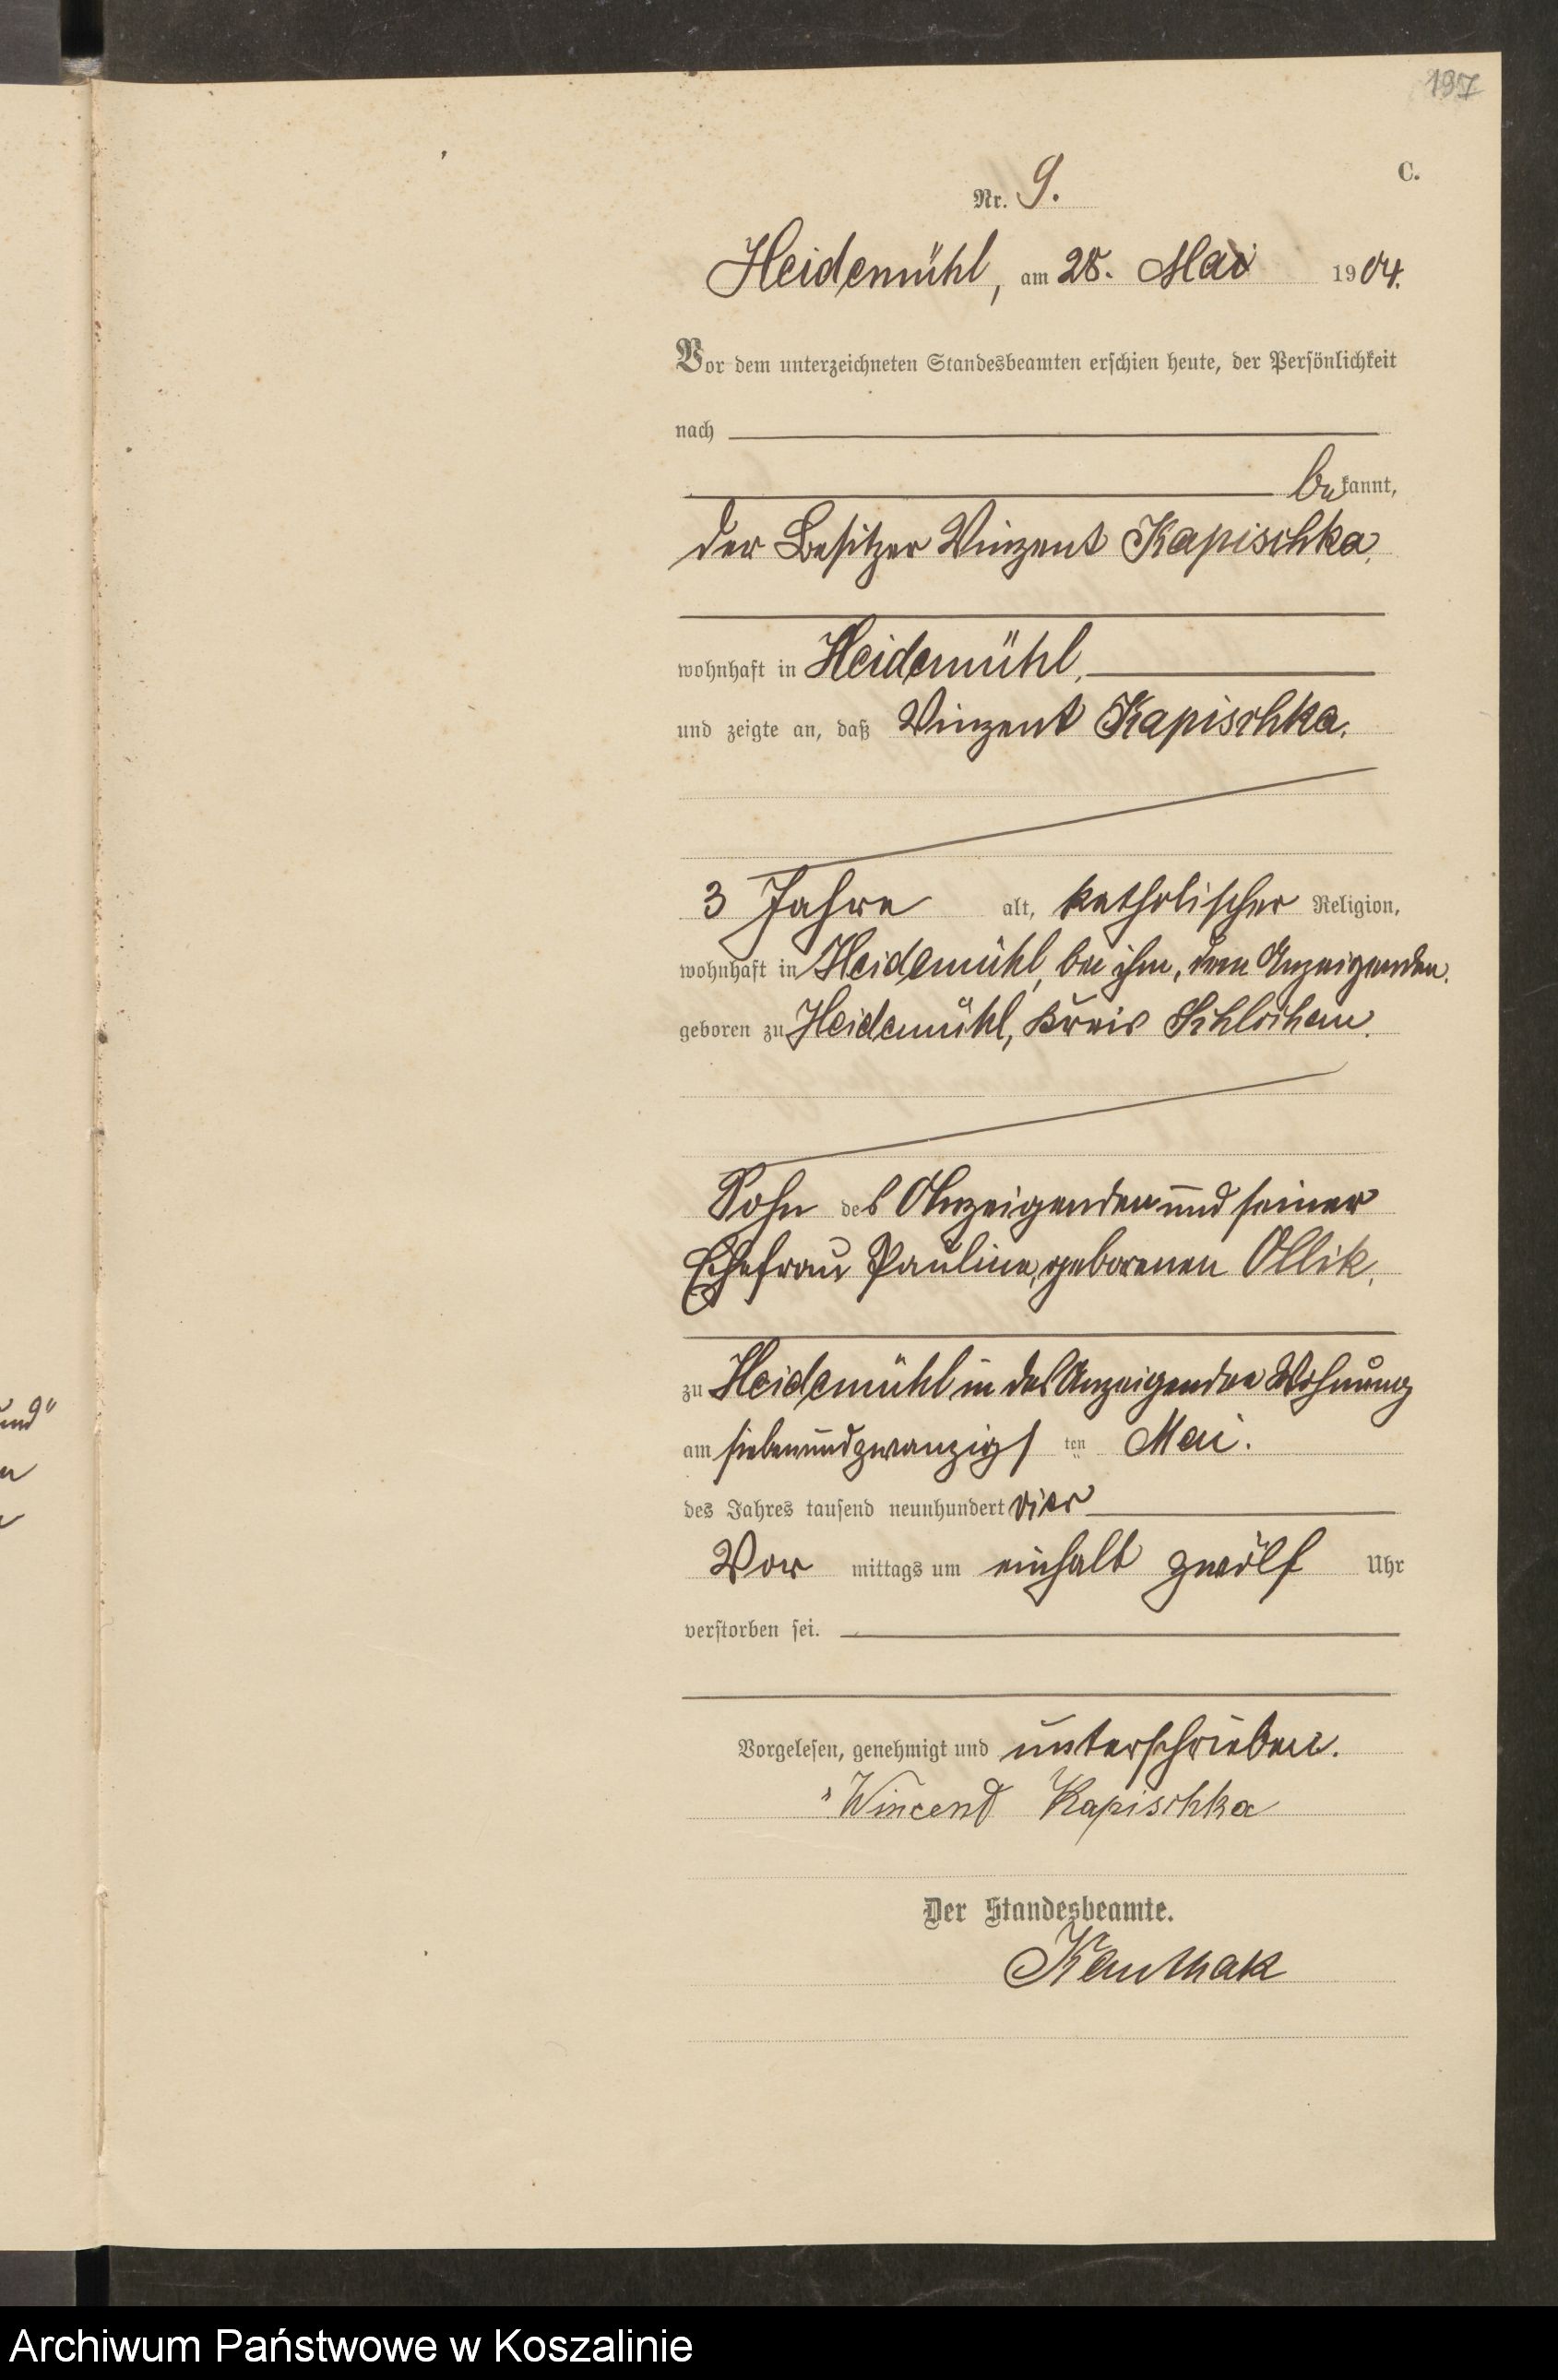 197
C.
Nr. 9.
Heidemühl, am 28. Mai 1904.
Vor dem unterzeichneten Standesbeamten erschien heute, der Persönlichkeit
nach
bekannt,
der Besitzer Vinzent Kapischka,
wohnhaft in Heidemühl,
und zeigte an, daß Vinzent Kapischka,
3 Jahre alt, katholischer Religion,
wohnhaft in Heidemühl, bei ihm, dem Anzeigenden,
geboren zu Heidemühl, Kreis Schlochau,
Sohn des Anzeigenden und seiner
Ehefrau Pauline, geborenen Ollik,
zu Heidemühl in des Anzeigenden Wohnung
am siebenundzwanzigsten Mai.
des Jahres tausend neunhundert vier
Vormittags um einhalb zwölf Uhr
verstorben sei.
Vorgelesen, genehmigt und unterschrieben.
Wincend Kapischka
Der Standesbeamte.
und"
Archiwum Państwowe w Koszalinie